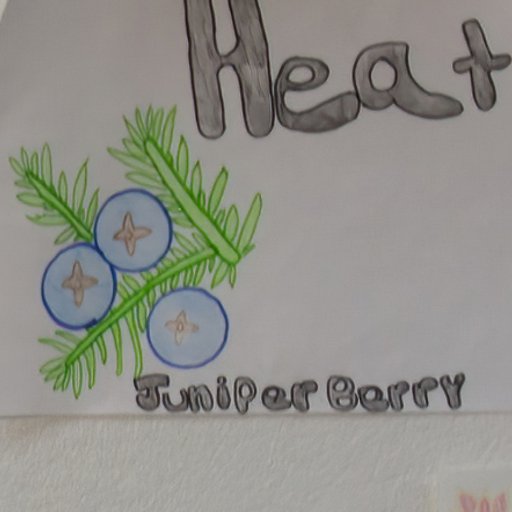 Heat
Juniper Berry